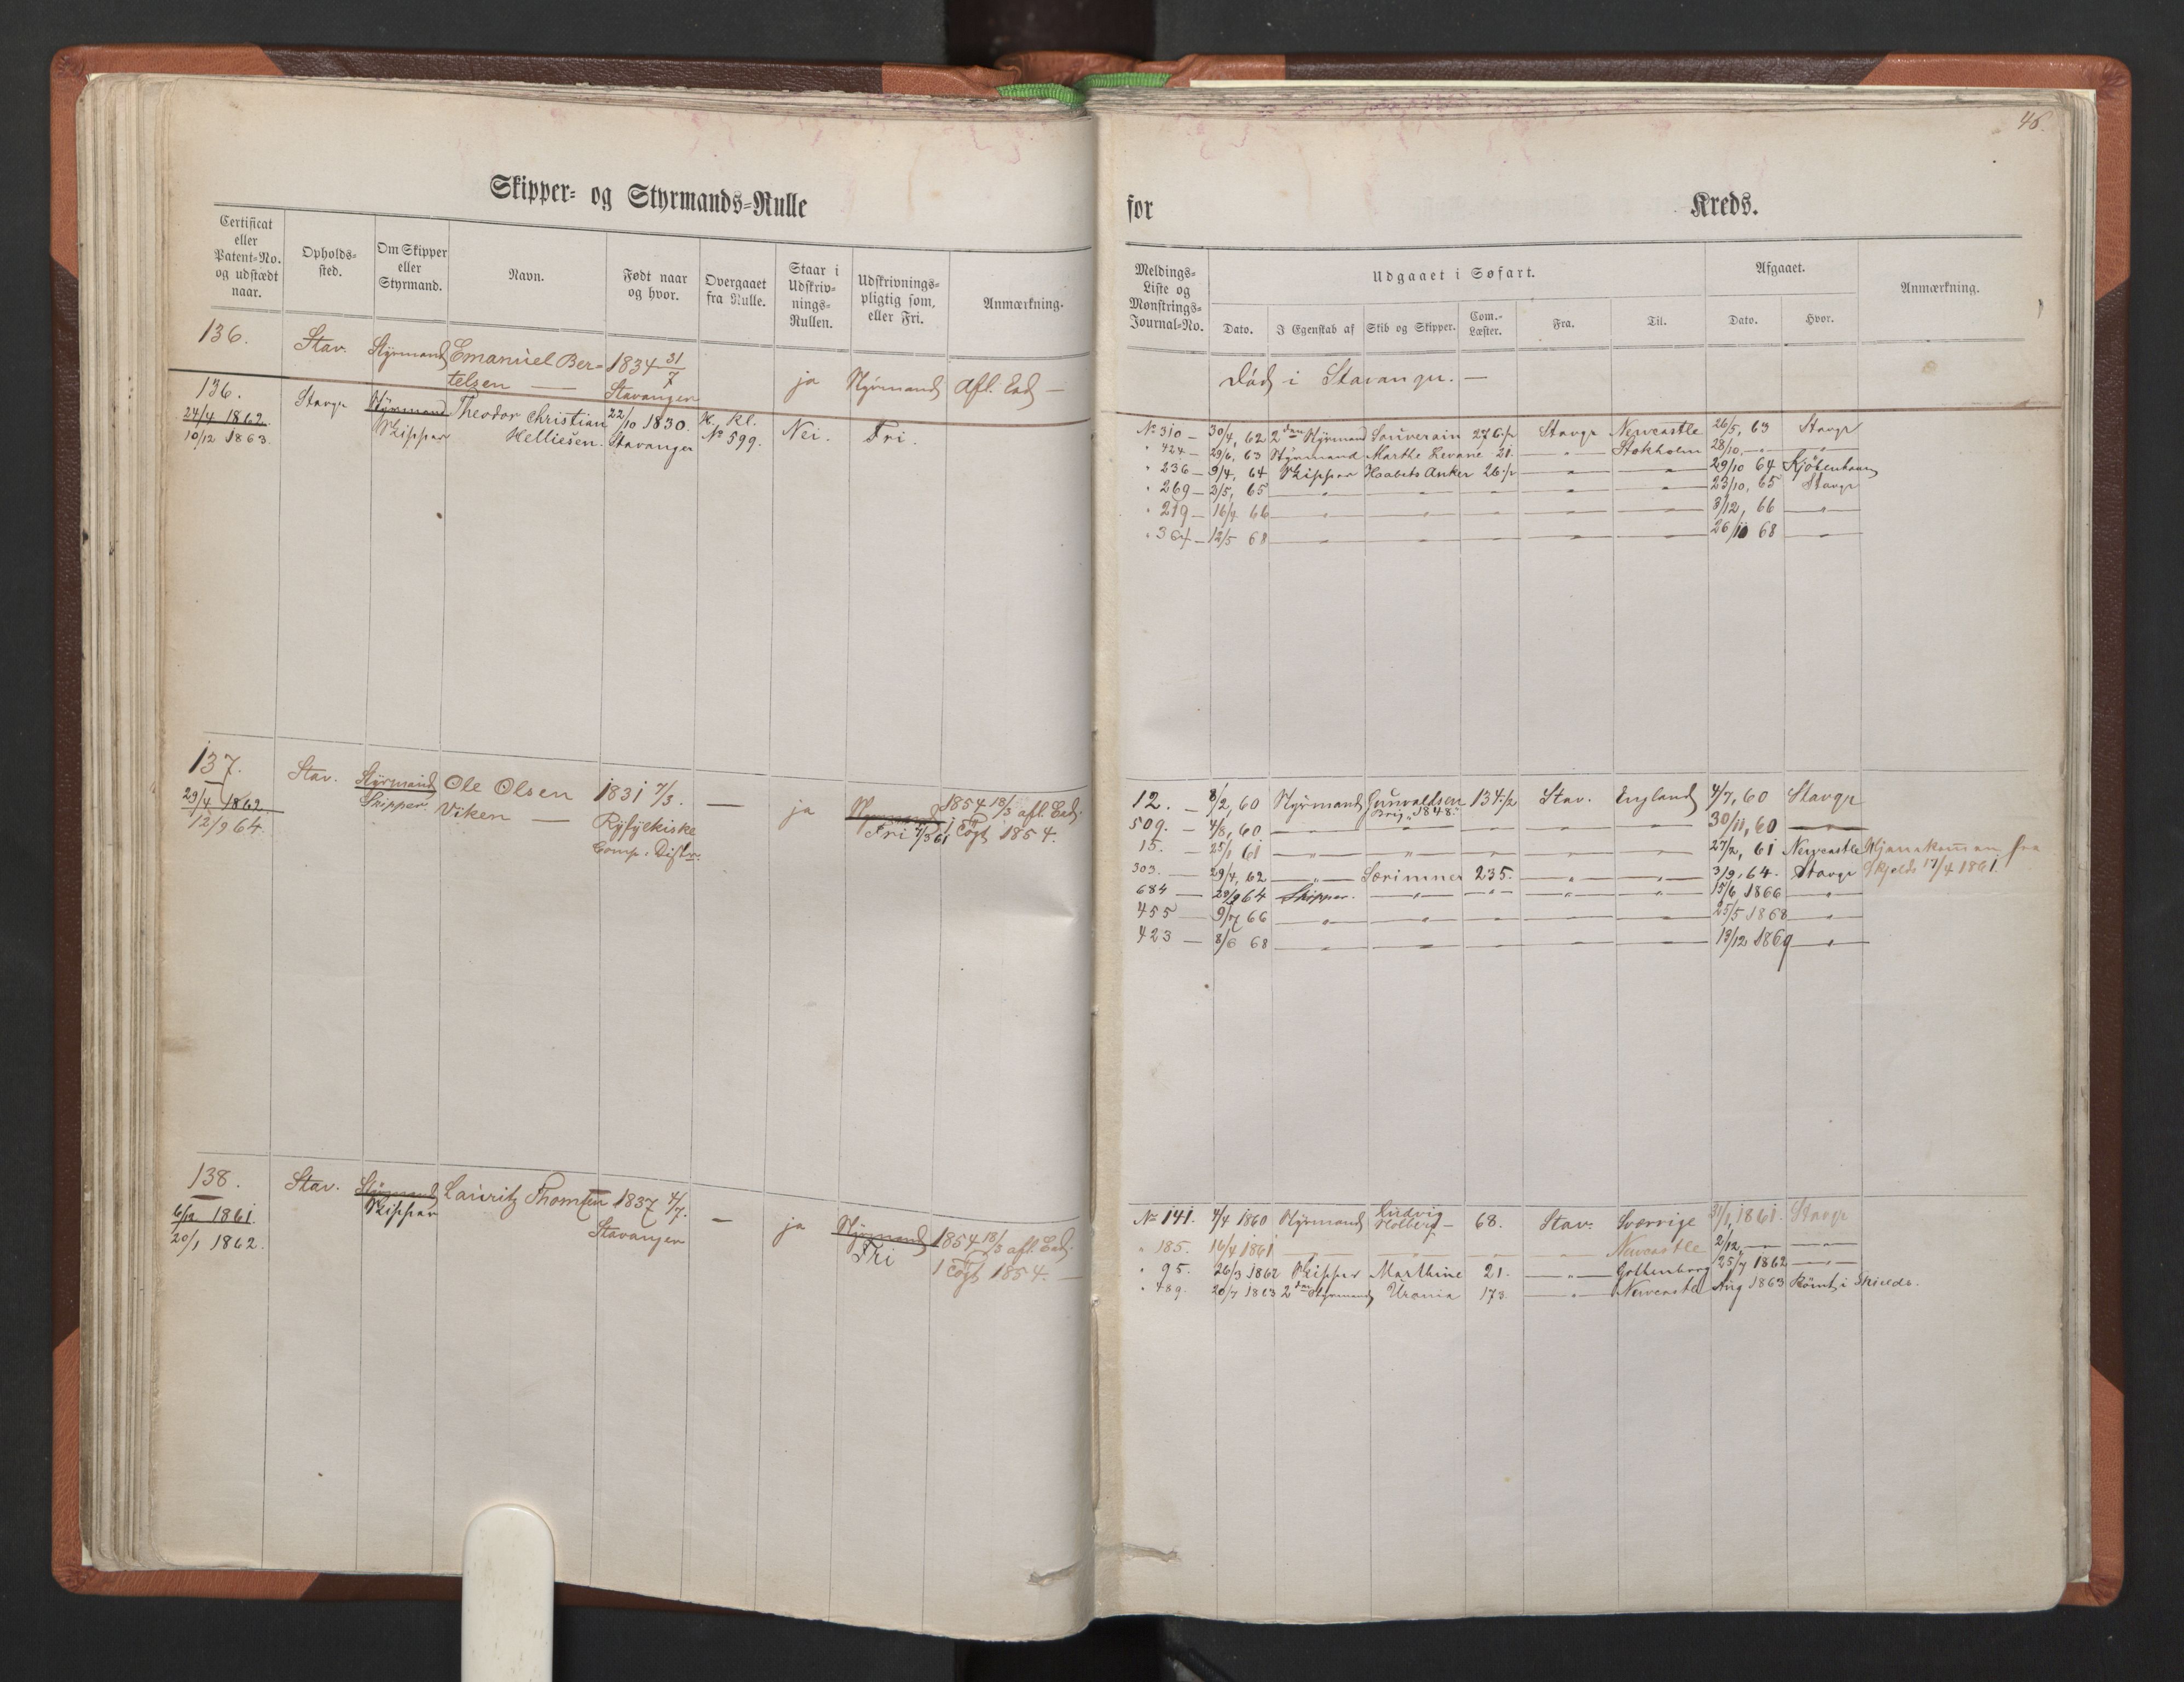 46.
Skipper- og Styrmands-Rulle
for Kreds.
Certificat eller Patent-No. og udstædt naar.
Opholds-sted.
Om Skipper eller Styrmand.
Navn.
Født naar og hvor.
Overgaaet fra Rulle.
Staar i Udskriv-nings-Rullen.
Udskrivnings-pligtig som, eller Fri.
Anmærkning.
Meldings-Liste og Mønstrings-Journal-No.
Udgaaet i Søfart.
Dato.
I Egenskab af
Skib og Skipper.
Com.-Læster.
Fra.
Til.
Afgaaet.
Dato.
Hvor.
Anmærkning.
136. Stav. Styrmand Emanuel Ber- 1834 31/7
telsen — Stavanger ja Styrmand Afl. Ed —
Død i Stavanger. —
136. Stavgr Styrmand Theodor Christian 22/10 1830. H. Kl.
24/4 1862. Skipper Helliesen. Stavanger No 599. Nei. Fri.
10/12 1863.
No 310 — 30/4, 62 2den Styrmand Souverain 276 1/2 Stavgr Newcastle 26/5, 63 Stavgr
" 424 — 29/6, 63 Styrmand Marthe Levane 21. — " — Stokholm 28/10, — " — — " —
" 236 — 9/4, 64 Skipper Haabets Anker 26 1/2 — " — — " — 29/10 64 Kjöbenhavn
" 269 — 3/5, 65 — " — — " — — " — — " — 23/10, 65 Stavgr
" 219 — 16/4 66 — " — — " — — " — — " — 8/12, 66 — " —
" 364 — 12/5 68 — " — — " — — " — — " — 26/10 68 — " —
137. Stav. Styrmand Ole Olsen 1831 7/3. — ja Styrmand 1854 18/3 afl. Ed.
29/4 1862. Skipper. Viken — Ryfylkiske Fri 7/3 61 1 Togt 1854.
12/9 64. Comp. Distr.
12. — 8/2, 60 Styrmand Gunvaldsen 134 1/2 Stav. England 4/7, 60 Stavgr
Brig "1848."
509. — 4/8, 60 — " — — " — — " — — " — 30/11, 60 — " —
15. — 25/1 61 — " — — " — — " — — " — 27/2, 61 Newcastle Hjemkommen fra
303. — 29/4, 62 — " — Særimner 235. — " — — " — 3/9, 64. Stavgr Skjelds 17/4 1861.
684 — 29/9 64 Skipper. — " — — " — — " — — " — 15/6 1866 — " —
455 — 9/7 66 — " — — " — — " — — " — 25/5 1868 — " —
423 — 8/6 68 — " — — " — — " — — " — 13/12 1869 — " —
138. Stav. Styrmand Lauritz Thomsen 1837 4/7. — ja Styrmand 1854 18/3 afl. Ed.
6/12 1861. Skipper Stavanger Fri 1 Togt 1854. —
20/1 1862.
No 141. 4/4 1860 Styrmand Ludvig Holberg — 68. Stav. Sverrige 31/1, 1861. Stavgr
" 185. 16/4 1861 — " — — " — — " — — " — Newcastle 2/12, — " — — " —
" 95. 26/3 1862 Skipper Marthine 21. — " — Gottenborg 25/7 1862 — " —
" 489. 20/7 1863 2den Styrmand Urania 173. — " — Newcastle Aug 1863 Römt i Shields.